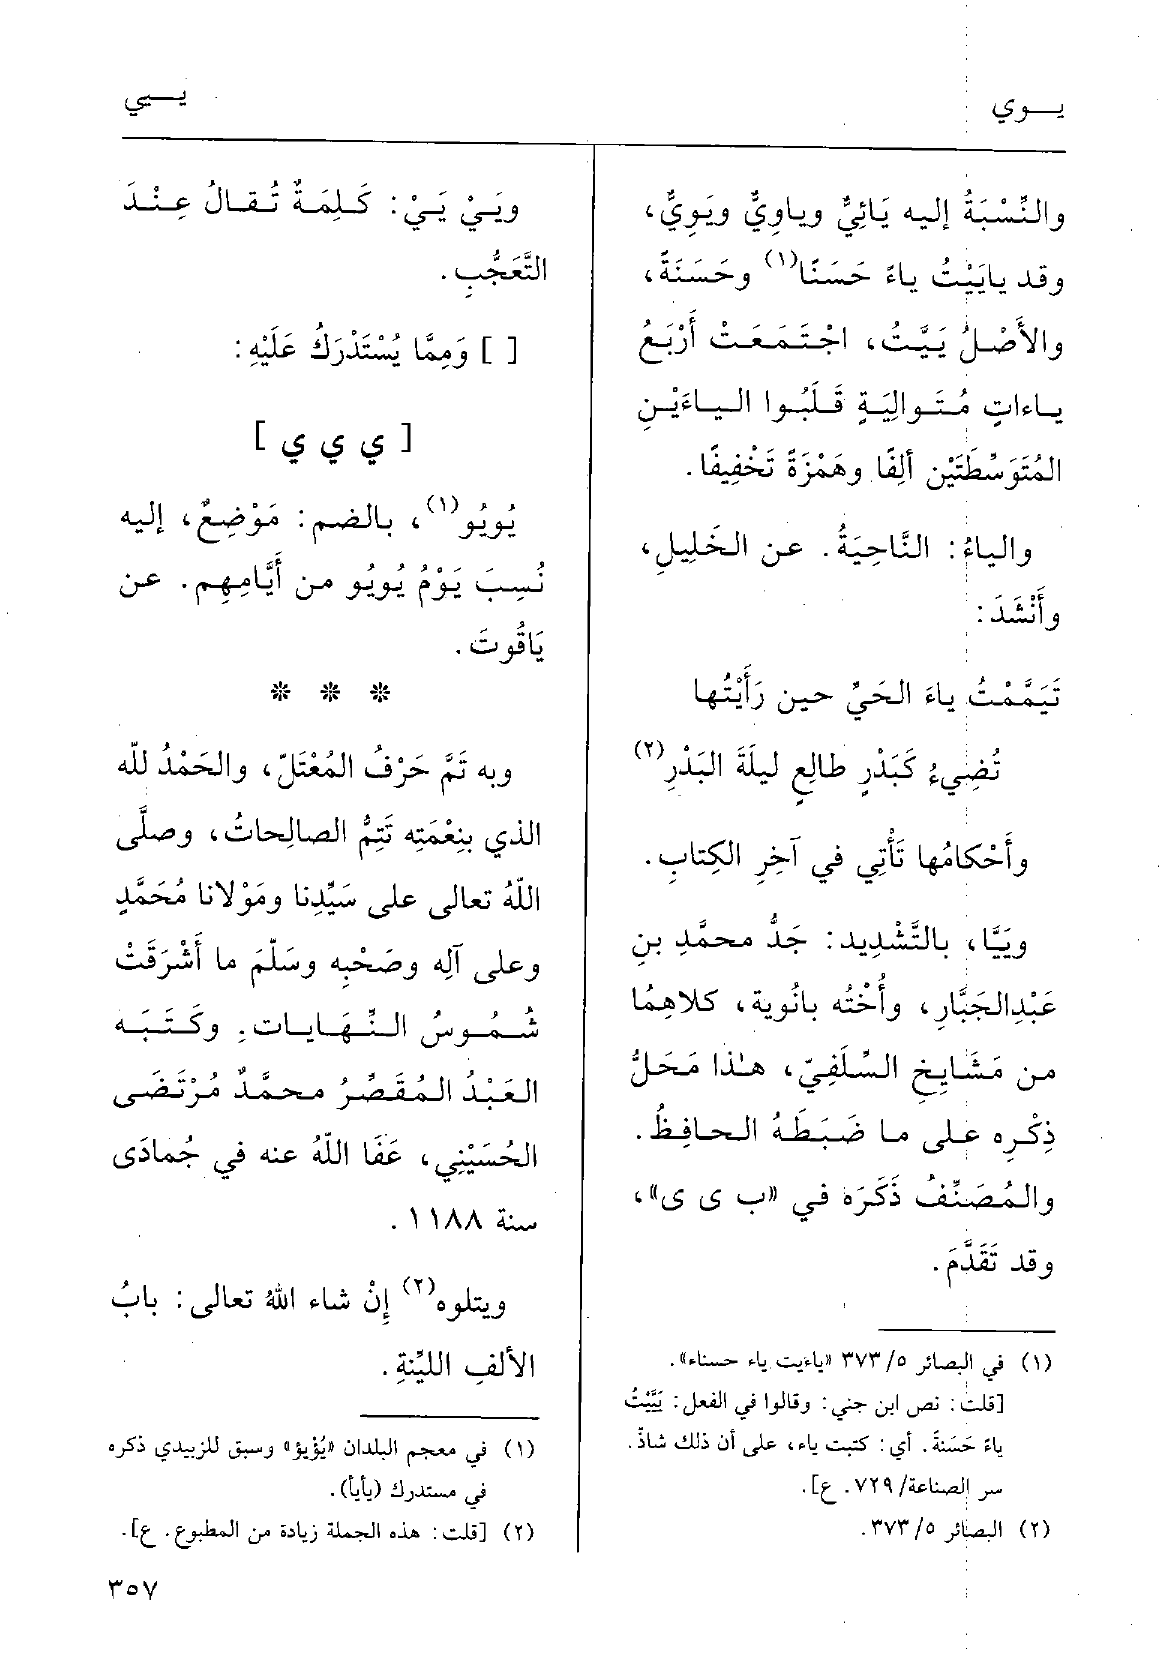 يــوي
يــيي
والنِّسْبَةُ إليه يَائِيٌّ وياوِيٌّ ويَوِيٌّ،
وقد يايَيْتُ ياءً حَسَنًا(١) وحَسَنَةً،
والأَصْلُ يَيَّيْتُ، اجْتَمَعَتْ أَرْبَعُ
ياءاتٍ مُتَوالِيَةٍ قَلَبُوا الياءَيْنِ
المُتَوَسِّطَتَيْنِ أَلِفًا وهَمْزَةً تَخْفِيفًا.
والياءُ: النَّاحِيَةُ. عن الخَلِيلِ،
وأَنْشَدَ:
تَيَمَّمْتُ ياءَ الحَيِّ حين رَأَيْتُها
تُضِيءُ كَبَدْرٍ طالِعٍ ليلَةَ البَدْرِ(٢)
وأَحْكامُها تَأْتِي في آخِرِ الكِتابِ.
ويَيَّا، بالتَّشْدِيد: جَدُّ محمَّدِ بنِ
عَبْدِالجَبَّارِ، وأُخْتُه بانُوية، كلاهِمُا
من مَشَايِخِ السِّلَفِيِّ، هـٰذا مَحَلُّ
ذِكْرِه على ما ضَبَطَهُ الحافِظُ.
والمُصَنِّفُ ذَكَرَه في «ب ى ى»،
وقد تَقَدَّمَ.
(١) في البصائر ٥/ ٣٧٣ «ياءيت ياء حسناء».
[قلت: نص ابن جني: وقالوا في الفعل: يَيَّيْتُ
ياءً حَسَنةً. أي: كتبت ياء، على أن ذلك شاذّ.
سر الصناعة/ ٧٢٩. ع].
(٢) البصائر ٥/ ٣٧٣.
ويَيْ يَيْ: كَلِمَةٌ تُقالُ عِنْدَ
التَّعَجُّبِ.
[ ] وَمِمَّا يُسْتَدْرَكُ عَلَيْهِ:
[ ي ي ي ]
يُويُو(١)، بالضم: مَوْضِعٌ، إليه
نُسِبَ يَوْمُ يُويُو من أَيَّامِهِم. عن
يَاقُوتَ.
* * *
وبه تَمَّ حَرْفُ المُعْتَلّ، والحَمْدُ للّه
الذي بنِعْمَتِه تَتِمُّ الصالِحاتُ، وصلَّى
اللّهُ تعالى على سَيِّدِنا ومَوْلانا مُحَمَّدٍ
وعلى آلِه وصَحْبِه وسَلَّمَ ما أَشْرَقَتْ
شُمُوسُ النِّهَايات. وكَتَبَه
العَبْدُ المُقَصِّرُ محمَّدٌ مُرْتَضَى
الحُسَيْنِي، عَفَا اللّهُ عنه في جُمادَى
سنة ١١٨٨.
ويتلوه(٢) إنْ شاء اللهُ تعالى: بابُ
الألفِ الليِّنةِ.
(١) في معجم البلدان «يُؤيؤ» وسبق للزبيدي ذكره
في مستدرك (يأيأ).
(٢) [قلت: هذه الجملة زيادة من المطبوع. ع].
٣٥٧